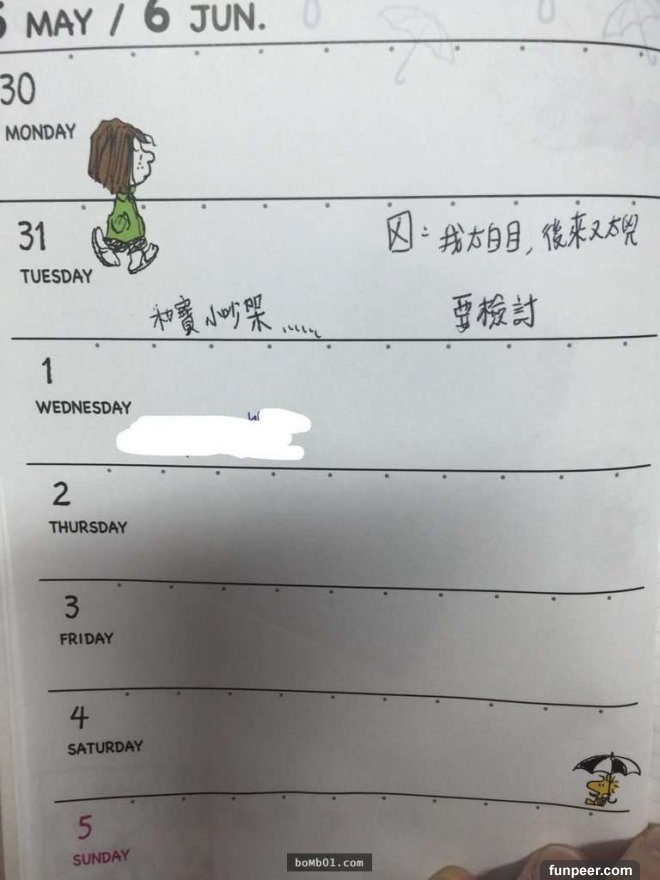 5 MAY / 6 JUN.
30
MONDAY
31
TUESDAY
因：我太白目，後來又太兇
和寶小吵架......
要檢討
1
WEDNESDAY
2
THURSDAY
3
FRIDAY
4
SATURDAY
5
SUNDAY
boMb01.com
funpeer.com